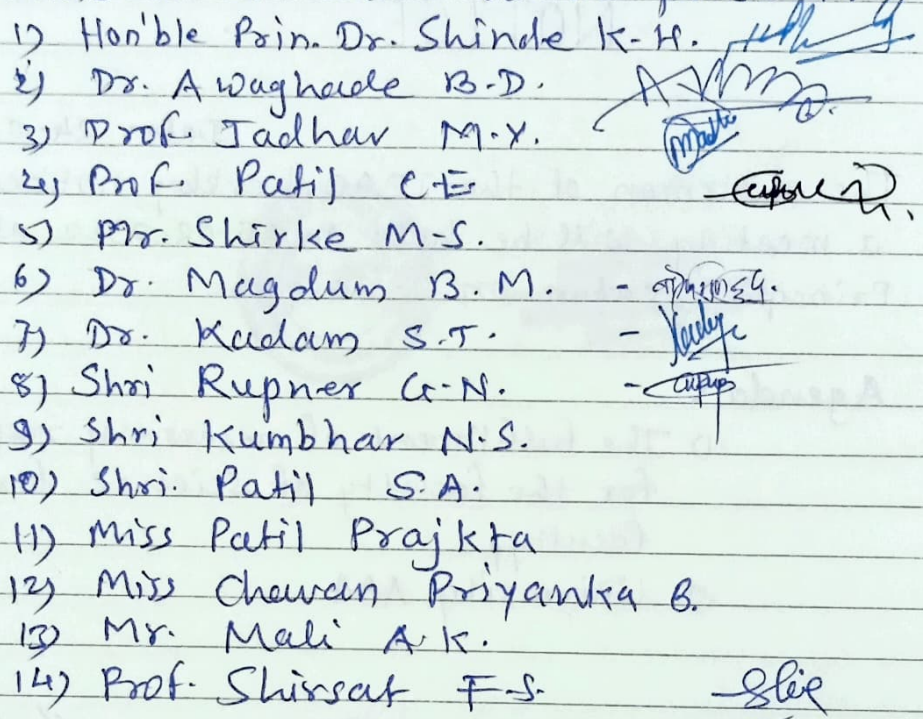 1) Hon'ble Prin. Dr. Shinde K.H.
2) Dr. Awaghade B.D.
3) Prof. Jadhav M.Y.
4) Prof Patil C.E.
5) Mr. Shirke M.S.
6) Dr. Magdum B.M. -
7) Dr. Kadam S.T. -
8) Shri Rupner G.N. -
9) Shri Kumbhar N.S.
10) Shri. Patil S.A.
11) Miss Patil Prajkta
12) Miss Chavan Priyanka B.
13) Mr. Mali A.K.
14) Prof. Shirsat F.S.